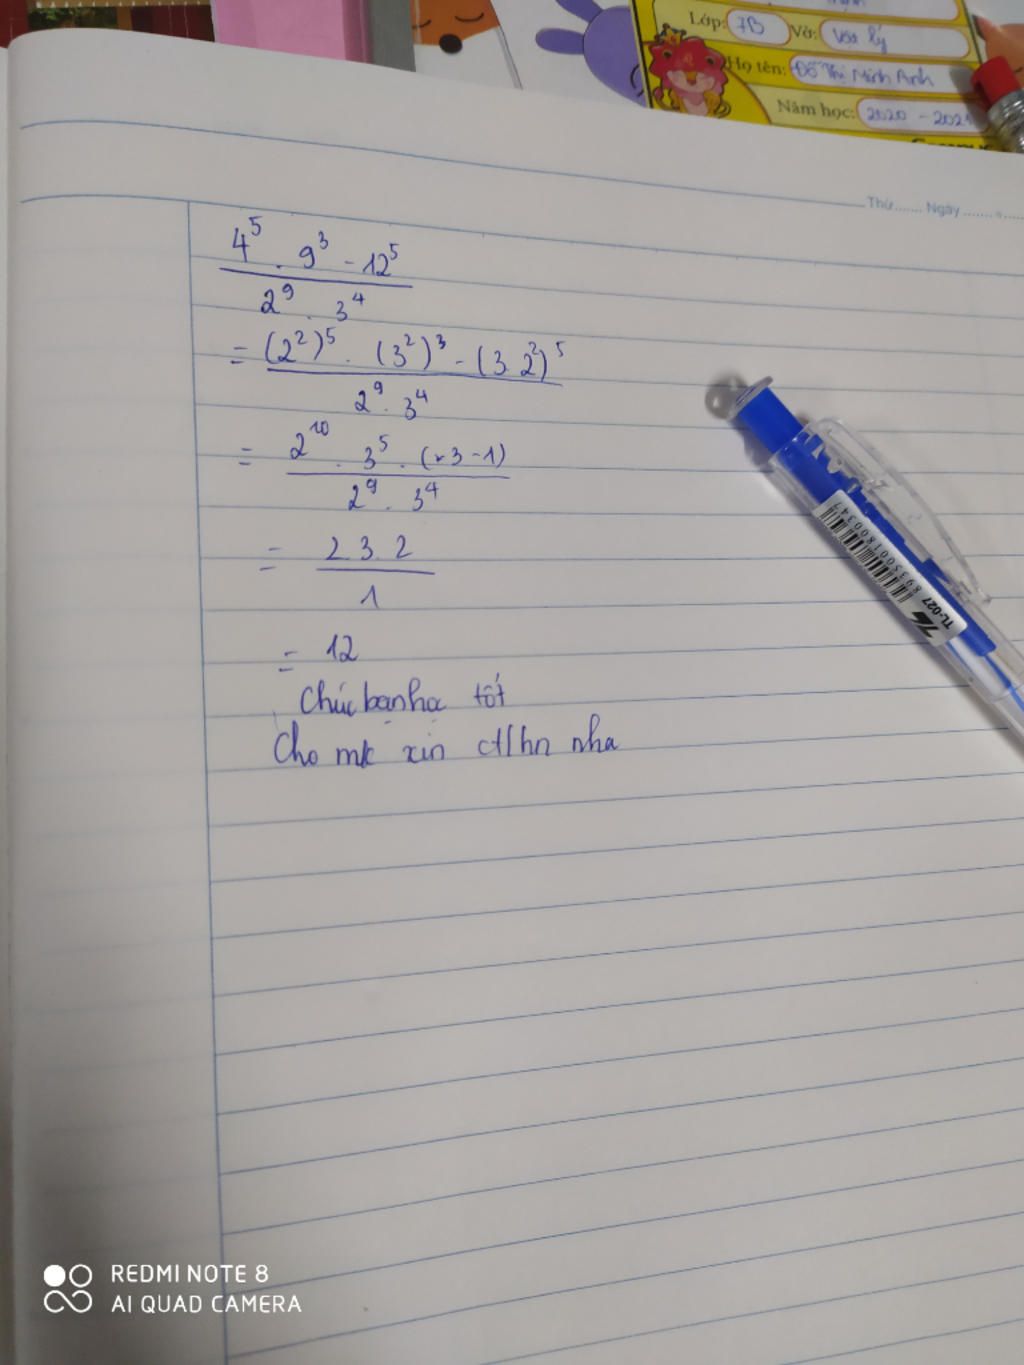 Lớp: 7B Vở: Vật lý
Họ tên: Đỗ Thị Minh Anh
Năm học: 2020 - 2021
Thứ....... Ngày .......
4⁵ . 9³ - 12⁵
2⁹ . 3⁴
= (2²)⁵ . (3²)³ - (3.2²)⁵
2⁹ . 3⁴
= 2¹⁰ . 3⁵ . (3 - 1)
2⁹ . 3⁴
= 2.3.2
1
= 12
Chúc bạn họ tốt
Cho mk xin ctlhn nha
TL-027 8935001800347
REDMI NOTE 8
AI QUAD CAMERA